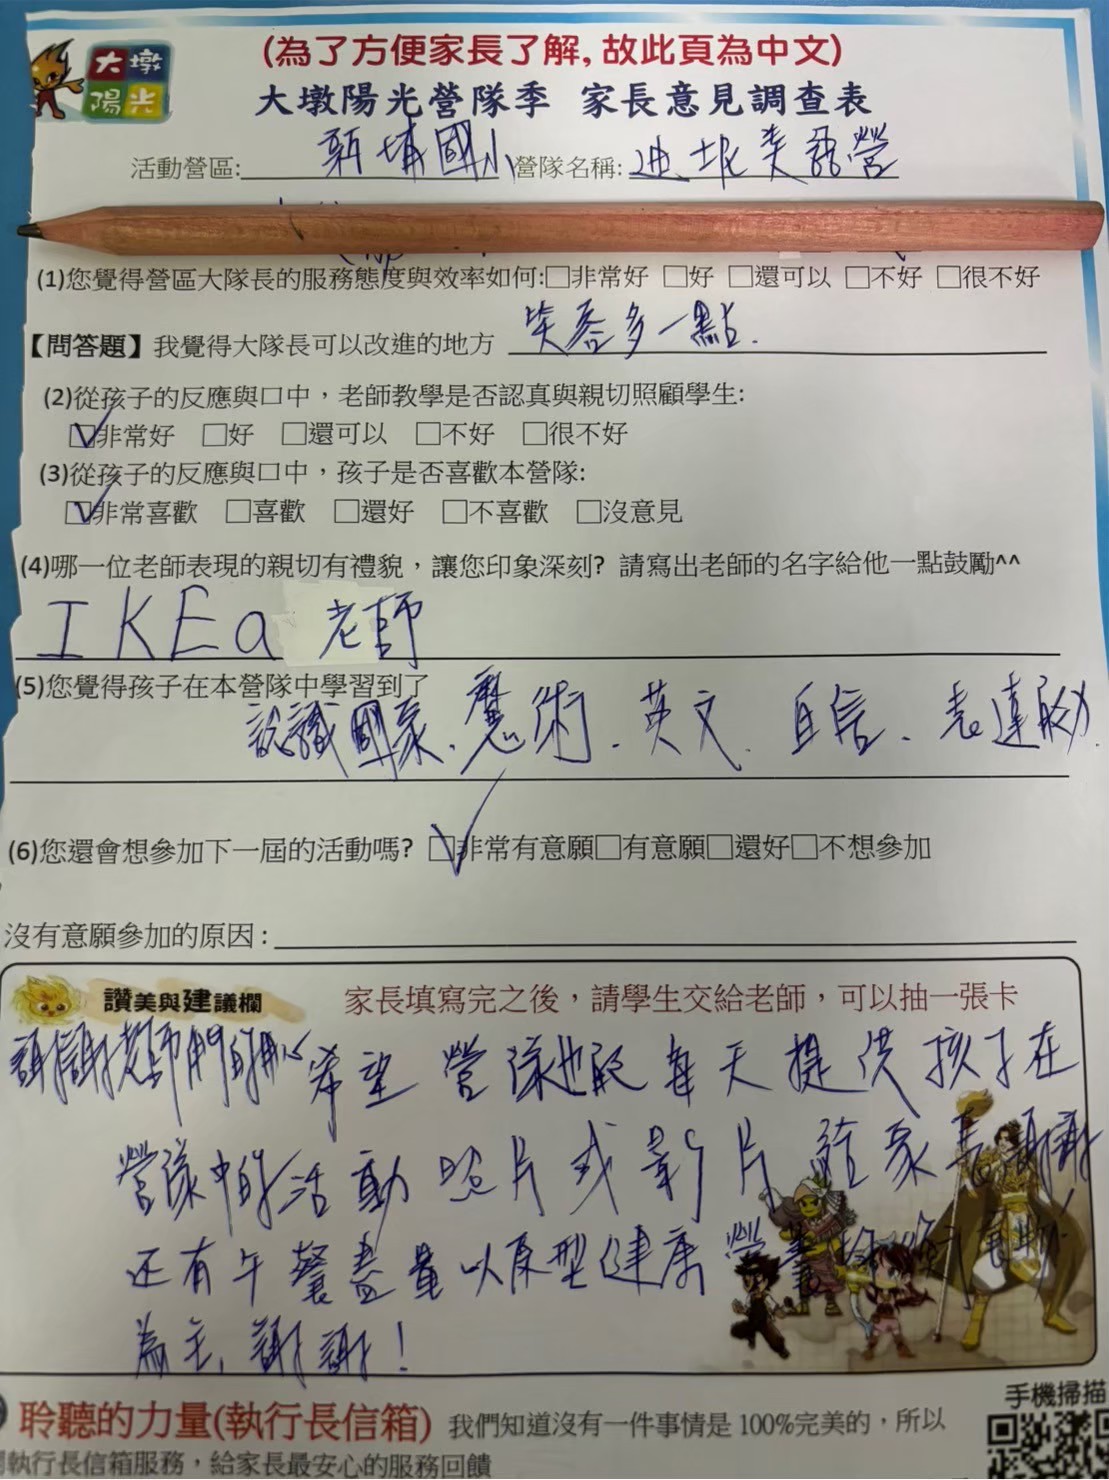 大墩
陽光
(為了方便家長了解,故此頁為中文)
大墩陽光營隊季 家長意見調查表
活動營區: 新埔國小 營隊名稱: 迪坭美語營
(1)您覺得營區大隊長的服務態度與效率如何:□非常好 □好 □還可以 □不好 □很不好
【問答題】我覺得大隊長可以改進的地方 笑容多一點.
(2)從孩子的反應與口中,老師教學是否認真與親切照顧學生:
☑非常好 □好 □還可以 □不好 □很不好
(3)從孩子的反應與口中,孩子是否喜歡本營隊:
☑非常喜歡 □喜歡 □還好 □不喜歡 □沒意見
(4)哪一位老師表現的親切有禮貌,讓您印象深刻? 請寫出老師的名字給他一點鼓勵^^
IKEa 老師
(5)您覺得孩子在本營隊中學習到了
認識國家、魔術、英文、自信、表達能力.
(6)您還會想參加下一屆的活動嗎? ☑非常有意願□有意願□還好□不想參加
沒有意願參加的原因:
讚美與建議欄 家長填寫完之後,請學生交給老師,可以抽一張卡
謝謝老師們的用心 希望營隊也能每天提供孩子在
營隊中的活動照片或影片給家長 謝謝
還有午餐盡量以原型健康營養
為主,謝謝!
聆聽的力量(執行長信箱) 我們知道沒有一件事情是 100%完美的,所以
執行長信箱服務,給家長最安心的服務回饋
手機掃描